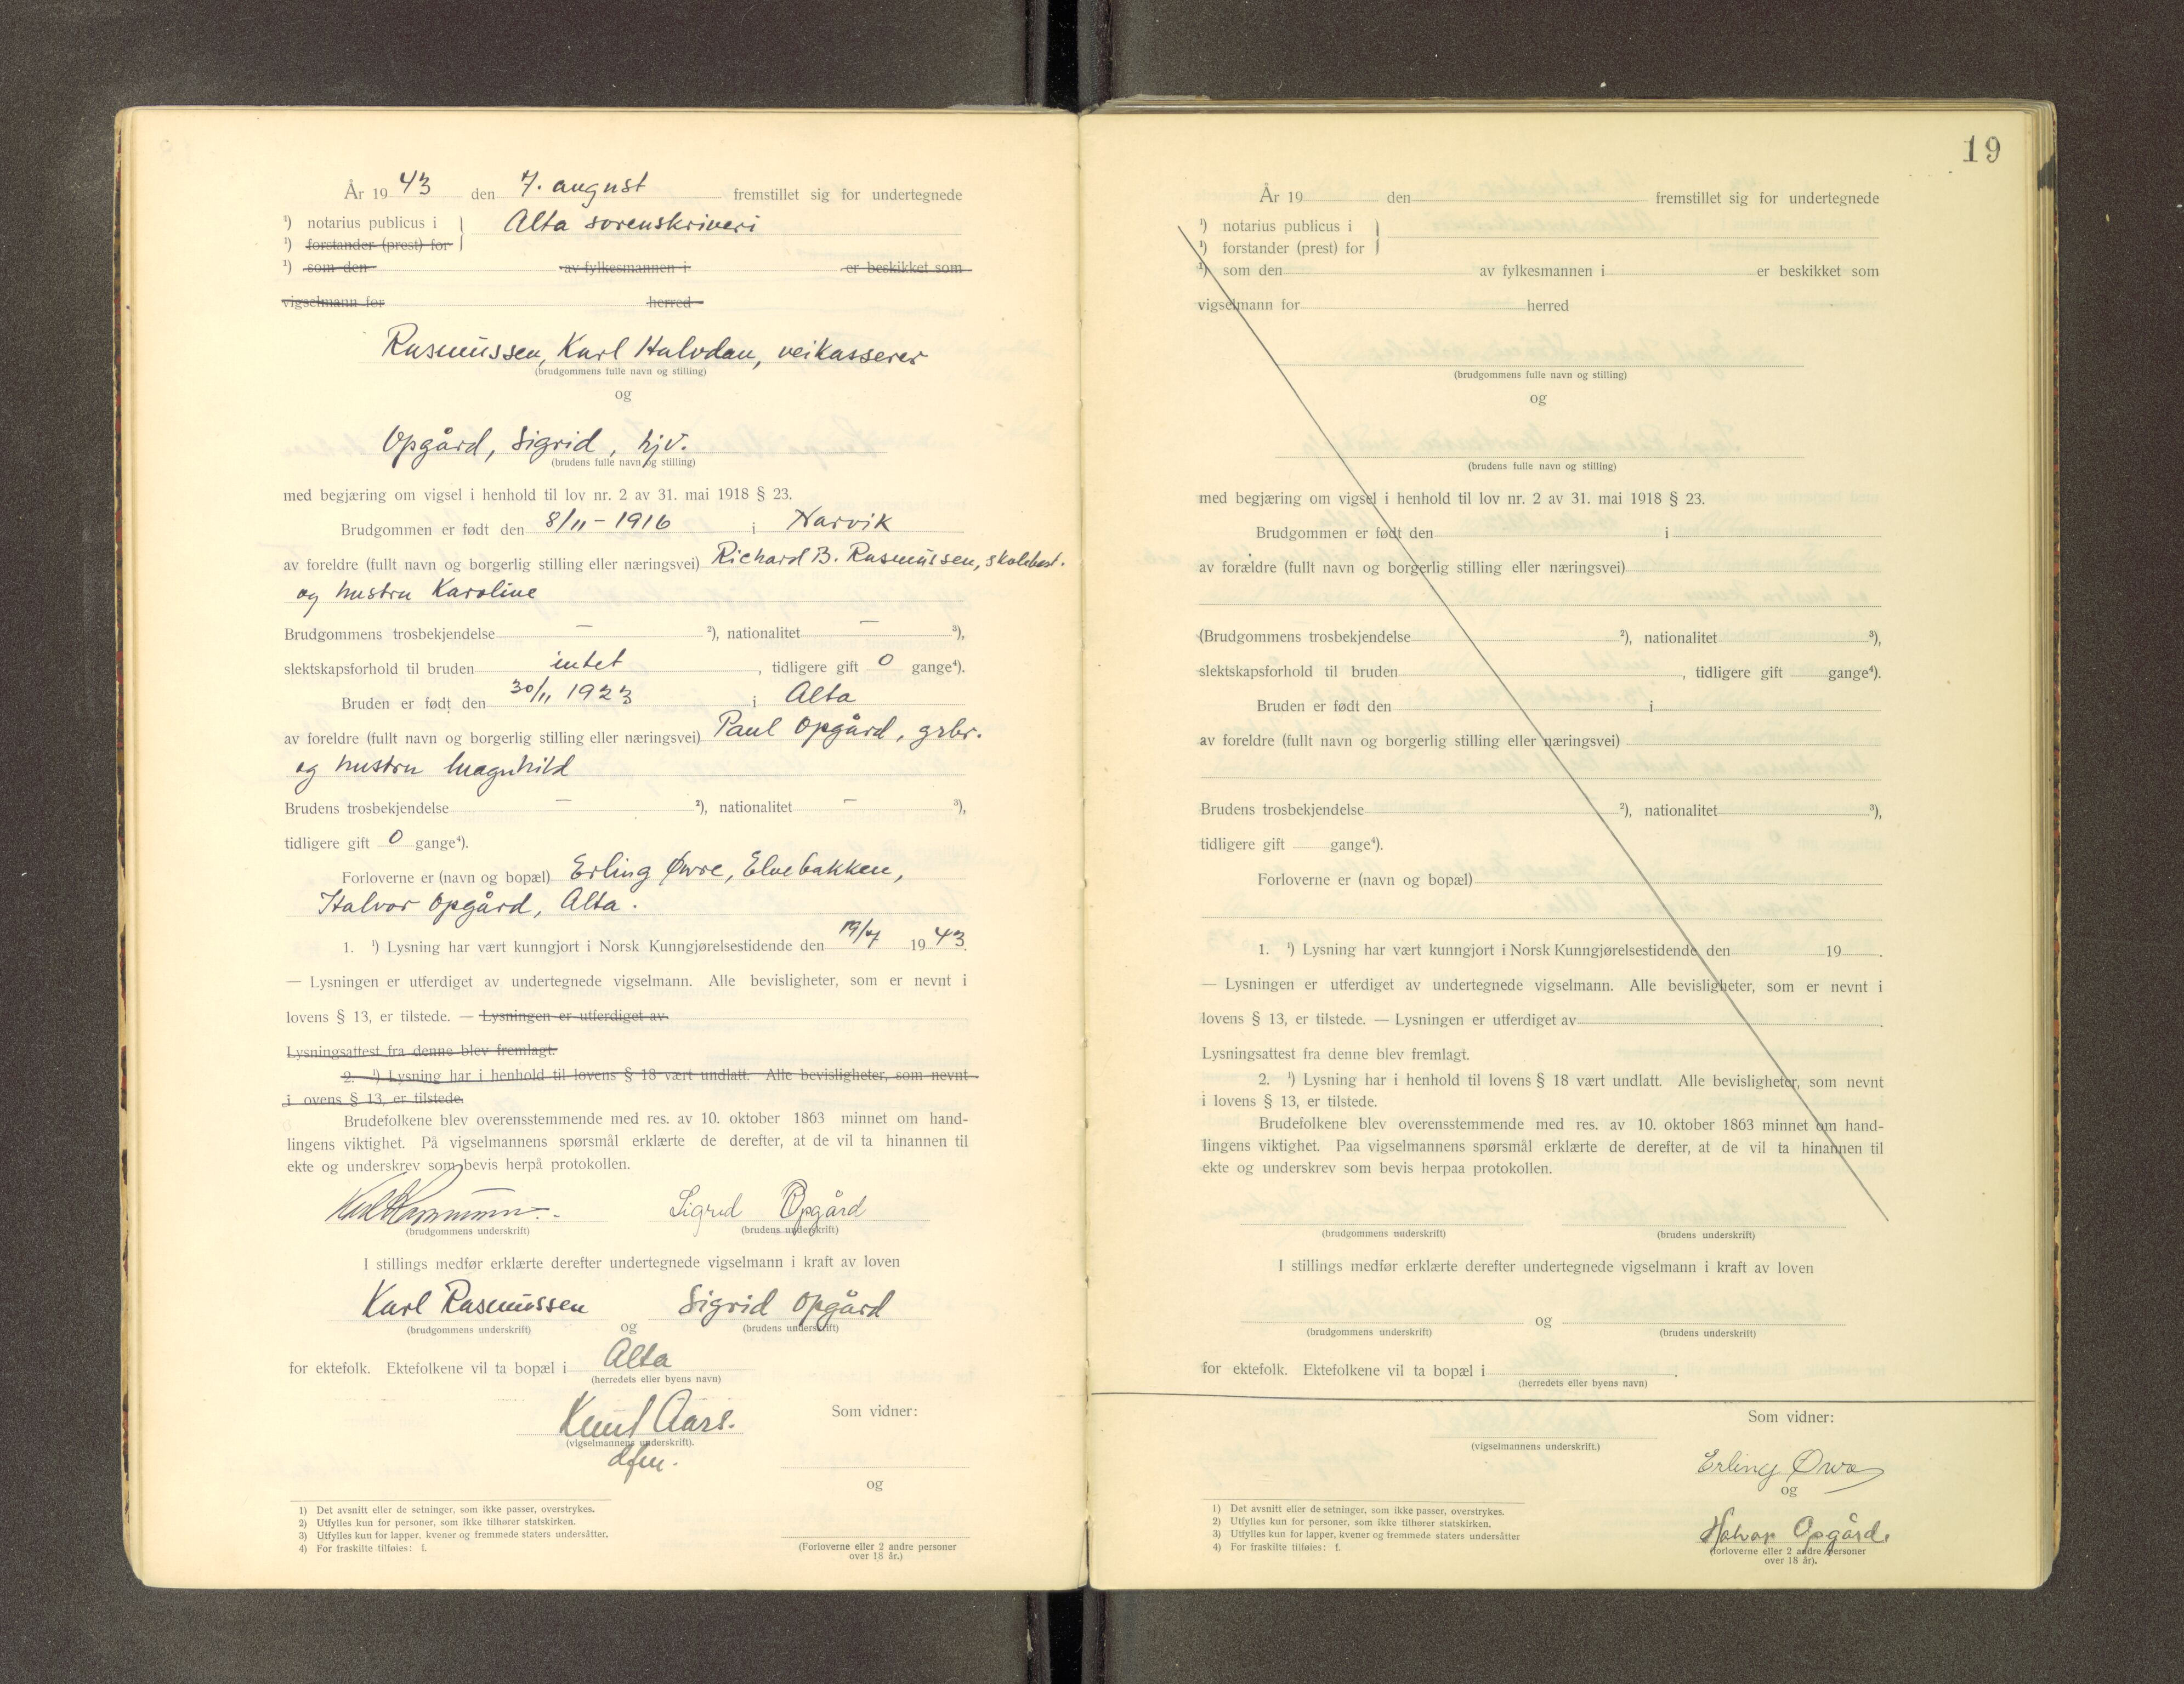 År 1943 den 7. august fremstillet sig for undertegnede
¹) notarius publicus i } Alta sorenskriveri
¹) forstander (prest) for
¹) som den av fylkesmannen i er beskikket som
vigselmann for herred
Rasmussen, Karl Halvdan, veikasserer
(brudgommens fulle navn og stilling)
og
Opgård, Sigrid, hjv.
(brudens fulle navn og stilling)
med begjæring om vigsel i henhold til lov nr. 2 av 31. mai 1918 § 23.
Brudgommen er født den 8/11 - 1916 i Narvik
av foreldre (fullt navn og borgerlig stilling eller næringsvei) Richard B. Rasmussen, skolebest.
og hustru Karoline
Brudgommens trosbekjendelse — ²), nationalitet — ³),
slektskapsforhold til bruden intet, tidligere gift 0 gange⁴).
Bruden er født den 30/11 1923 i Alta
av foreldre (fullt navn og borgerlig stilling eller næringsvei) Paul Opgård, grbr.
og hustru Magnhild
Brudens trosbekjendelse — ²), nationalitet — ³),
tidligere gift 0 gange⁴).
Forloverne er (navn og bopæl) Erling Øvre, Elvebakken,
Halvor Opgård, Alta.
1. ¹) Lysning har vært kunngjort i Norsk Kunngjørelsestidende den 19/7 1943.
— Lysningen er utferdiget av undertegnede vigselmann. Alle bevisligheter, som er nevnt i
lovens § 13, er tilstede. — Lysningen er utferdiget av
Lysningsattest fra denne blev fremlagt.
2. ¹) Lysning har i henhold til lovens § 18 vært undlatt. Alle bevisligheter, som nevnt
i ovens § 13, er tilstede.
Brudefolkene blev overensstemmende med res. av 10. oktober 1863 minnet om hand-
lingens viktighet. På vigselmannens spørsmål erklærte de derefter, at de vil ta hinannen til
ekte og underskrev som bevis herpå protokollen.
Karl Rasmussen. Sigrid Opgård
(brudgommens underskrift) (brudens underskrift)
I stillings medfør erklærte derefter undertegnede vigselmann i kraft av loven
Karl Rasmussen og Sigrid Opgård
(brudgommens underskrift) (brudens underskrift)
for ektefolk. Ektefolkene vil ta bopæl i Alta
(herredets eller byens navn)
Knut Aars.
(vigselmannens underskrift).
dfm.
Som vidner:
og
(Forloverne eller 2 andre personer
over 18 år.)
1) Det avsnitt eller de setninger, som ikke passer, overstrykes.
2) Utfylles kun for personer, som ikke tilhører statskirken.
3) Utfylles kun for lapper, kvener og fremmede staters undersåtter.
4) For fraskilte tilføies: f.
19
År 19 den fremstillet sig for undertegnede
¹) notarius publicus i }
¹) forstander (prest) for
¹) som den av fylkesmannen i er beskikket som
vigselmann for herred
(brudgommens fulle navn og stilling)
og
(brudens fulle navn og stilling)
med begjæring om vigsel i henhold til lov nr. 2 av 31. mai 1918 § 23.
Brudgommen er født den i
av forældre (fullt navn og borgerlig stilling eller næringsvei)
(Brudgommens trosbekjendelse ²), nationalitet ³),
slektskapsforhold til bruden , tidligere gift gange⁴).
Bruden er født den i
av foreldre (fullt navn og borgerlig stilling eller næringsvei)
Brudens trosbekjendelse ²), nationalitet ³),
tidligere gift gange⁴).
Forloverne er (navn og bopæl)
1. ¹) Lysning har vært kunngjort i Norsk Kunngjørelsestidende den 19 .
— Lysningen er utferdiget av undertegnede vigselmann. Alle bevisligheter, som er nevnt i
lovens § 13, er tilstede. — Lysningen er utferdiget av
Lysningsattest fra denne blev fremlagt.
2. ¹) Lysning har i henhold til lovens § 18 vært undlatt. Alle bevisligheter, som nevnt
i lovens § 13, er tilstede.
Brudefolkene blev overensstemmende med res. av 10. oktober 1863 minnet om hand-
lingens viktighet. Paa vigselmannens spørsmål erklærte de derefter, at de vil ta hinannen til
ekte og underskrev som bevis herpaa protokollen.
(brudgommens underskrift) (brudens underskrift)
I stillings medfør erklærte derefter undertegnede vigselmann i kraft av loven
og
(brudgommens underskrift) (brudens underskrift)
for ektefolk. Ektefolkene vil ta bopæl i .
(herredets eller byens navn)
(vigselmannens underskrift.)
Som vidner:
Erling Øvre
og
Halvor Opgård.
(forloverne eller 2 andre personer
over 18 år).
1) Det avsnitt eller de setninger, som ikke passer, overstrykes.
2) Utfylles kun for personer, som ikke tilhører statskirken.
3) Utfylles kun for lapper, kvener og fremmede staters undersåtter
4) For fraskilte tilføies: f.